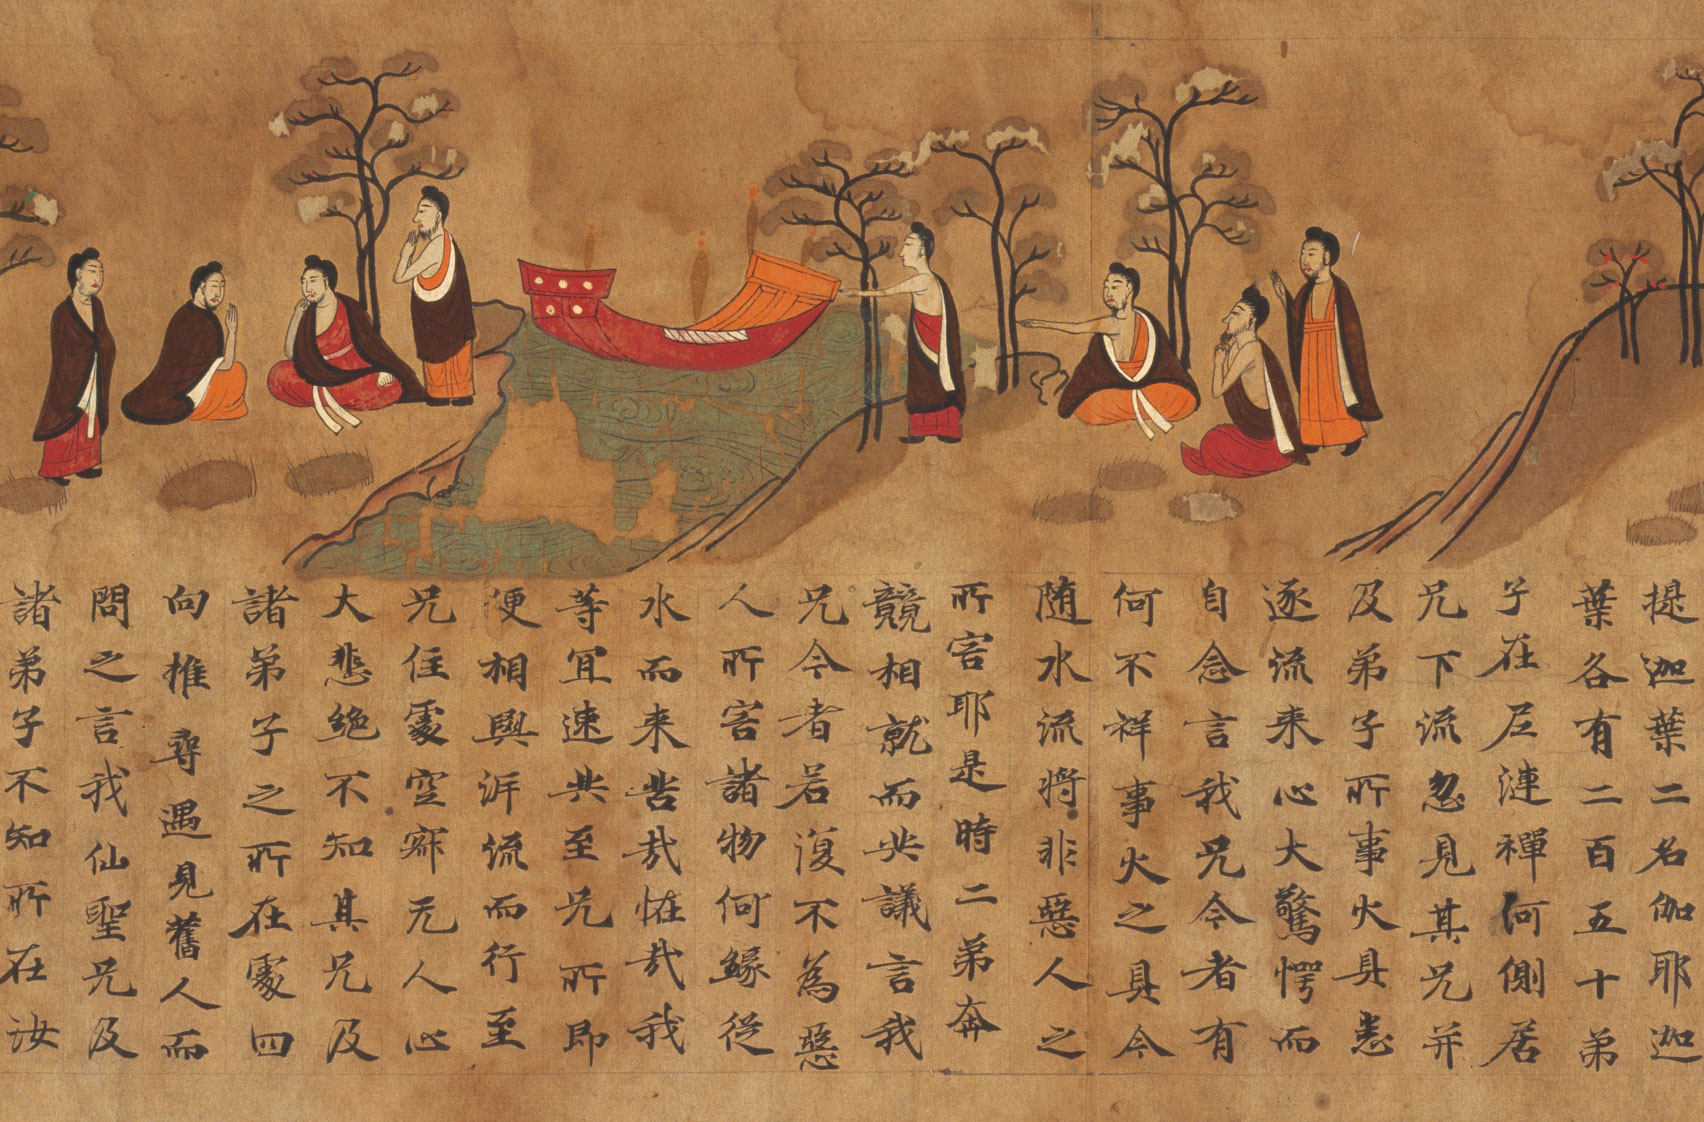 提迦葉二名伽耶迦
葉各有二百五十弟
子在尼連禪何側居
兄下流忽見其兄并
及弟子所事火具悉
逐流来心大驚愕而
自念言我兄今者有
何不祥事火之具今
随水流將非惡人之
所害耶是時二弟奔
競相就而共議言我
兄今者若復不為惡
人所害諸物何緣從
水而来苦哉恠哉我
等冝速共至兄所即
便相與泝流而行至
兄住處空寂无人心
大悲絶不知其兄及
諸弟子之所在處四
向推尋遇見舊人而
問之言我仙聖兄及
諸弟子不知所在汝